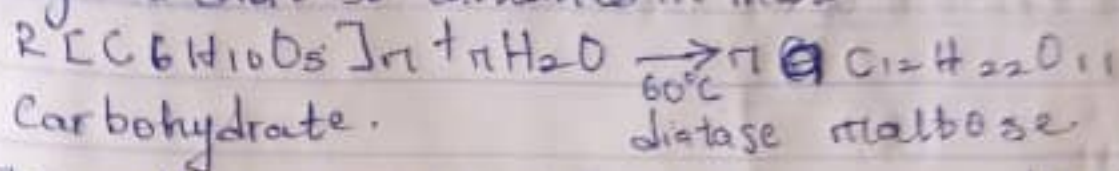 2[C6H10O5]n + nH2O → n C12H22O11
60°C
Carbohydrate. diatase maltose